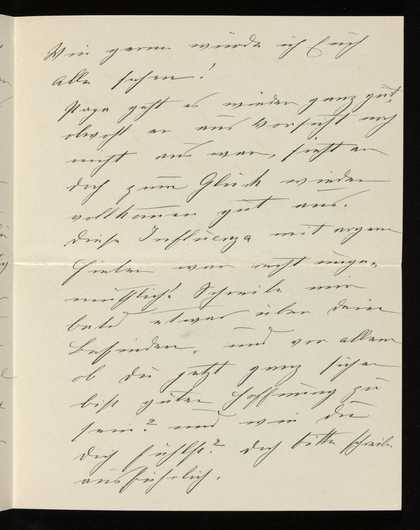 Wie gerne würde ich Euch
Alle sehen!
Papa geht es wieder ganz gut,
obwohl er aus Vorsicht noch
nicht aus war, sieht er
doch zum Glück wieder
vollkomen gut aus.
Diese Influenza mit argem
Fieber war recht unge-
müthlich! Schreibe mir
bald etwas über dein
Befinden, und vor allem
ob du jetzt ganz sicher
bist guter Hoffnung zu
sein? und wie du
dich fühlst? Doch bitte schreibe
ausführlich.